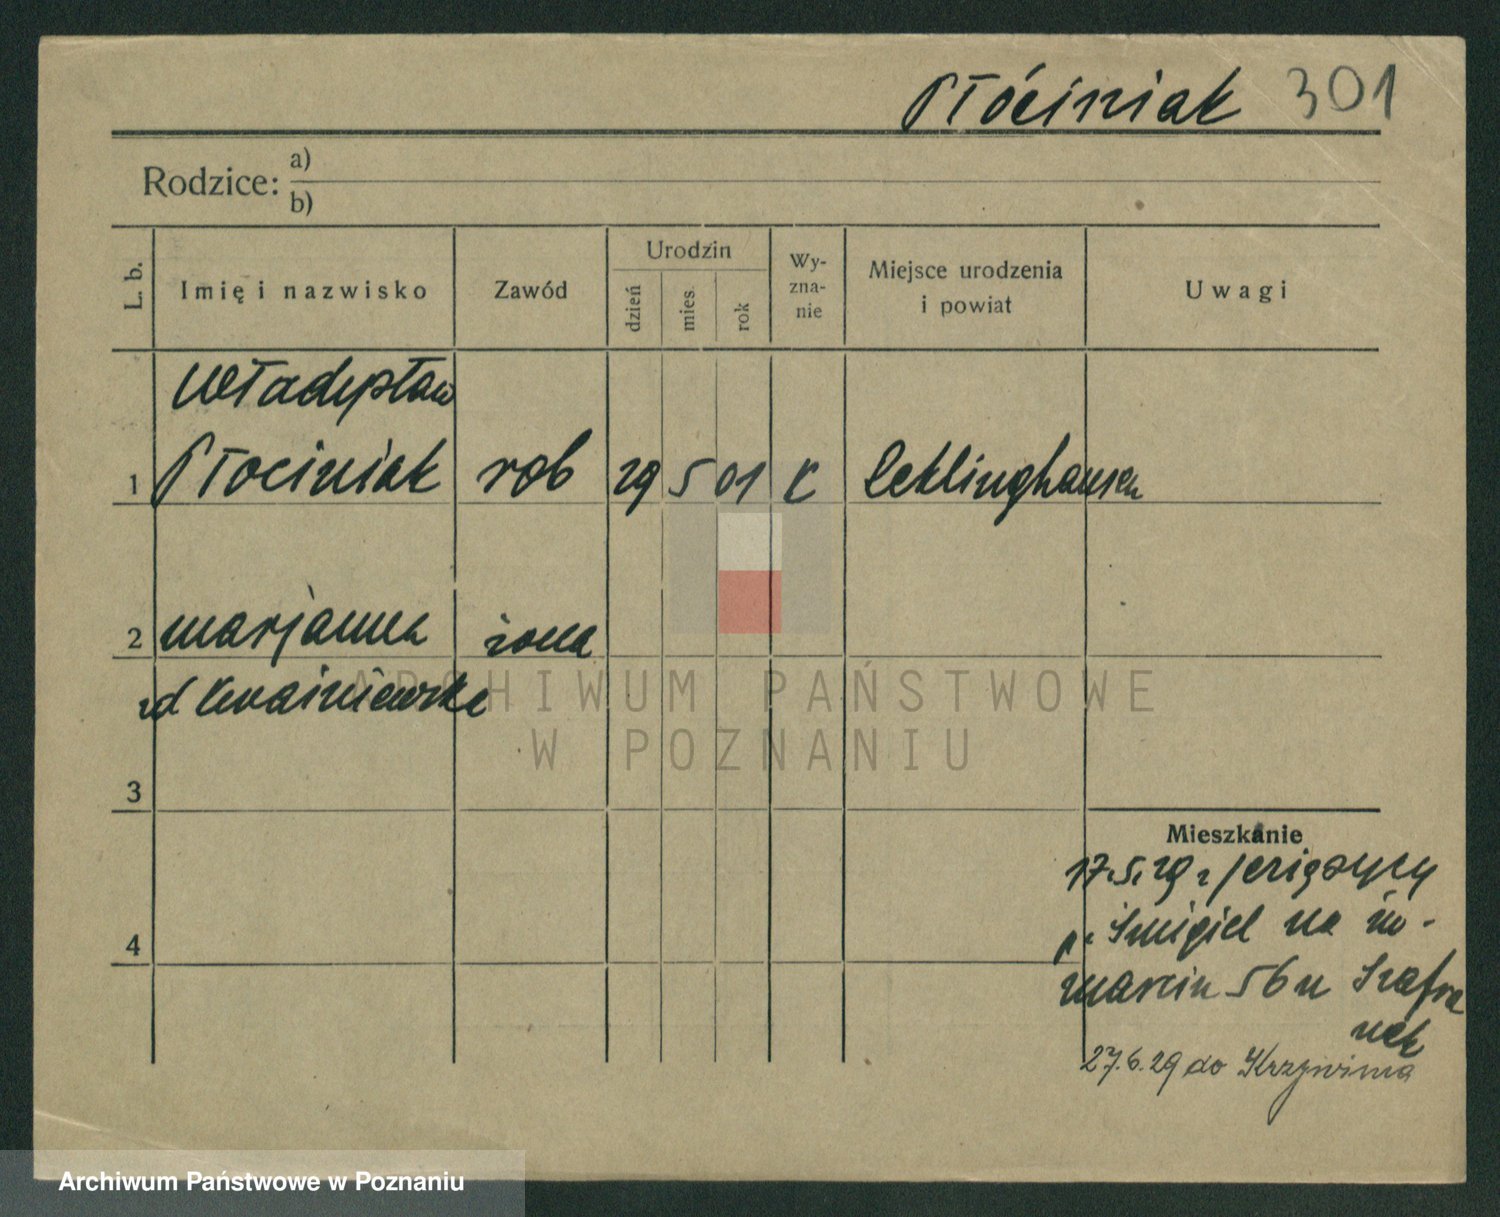 Płóciniak 301
Rodzice: a)
b)
L. b.
Imię i nazwisko
Zawód
Urodzin
dzień
mies.
rok
Wy-
zna-
nie
Miejsce urodzenia
i powiat
Uwagi
Władysław
1 Płociniak rob 29 5 01 k
2 Marjanna żona
zd
3
4
Mieszkanie
17.5.29 z
p. Śmigiel na św.
Marcin 56 u Szafra
nek
27.6.29 do Krzywinia
ARCHIWUM PAŃSTWOWE
W POZNANIU
Archiwum Państwowe w Poznaniu